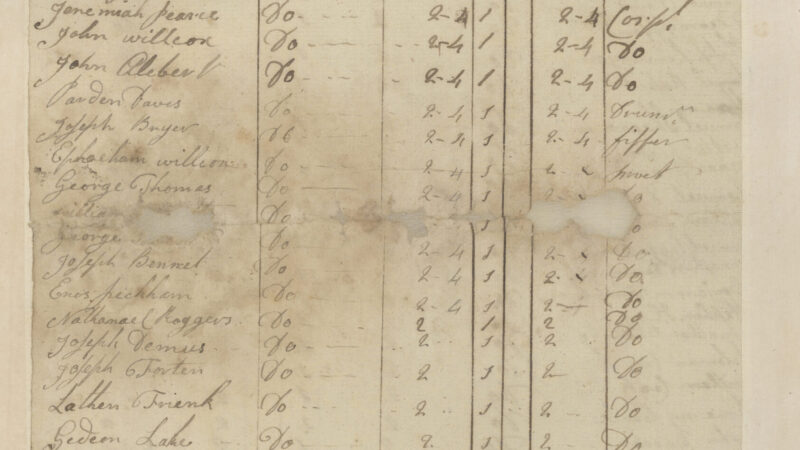 Jeremiah Pearce Do 2-4 1 2-4 Corp.
John willcox Do 2-4 1 2-4 Do
John Do 2-4 1 2-4 Do
Parden Daves Do 2-4 1 2-4 Drumr
Joseph Bryer Do 2-4 1 2-4 fiffer
willcox Do 2-4 1 2- privet
George Thomas Do 2-4 1 2- Do
william Do
George Do 2-4 1 2- Do
Joseph Bennet Do 2-4 1 2- Do
Enos peckham Do 2-4 1 2- Do
Nathanael Roggers Do 2 1 2 Do
Joseph Demus Do 2 1 2 Do
Joseph Forten Do 2 1 2 Do
Lathen Frienk Do 2 1 2 Do
Gedeon Lake Do 2 1 2 Do